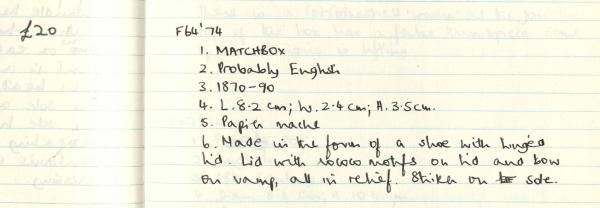 £20
F64'74
1. MATCHBOX
2. Probably English
3. 1870-90
4. L. 8.2 cm; W. 2.4 cm; H. 3.5cm.
5. Papier mache
6. Made in the form of a shoe with hinged
lid. Lid with rococo motifs on lid and bow
on vamp, all in relief. Striker on sole.